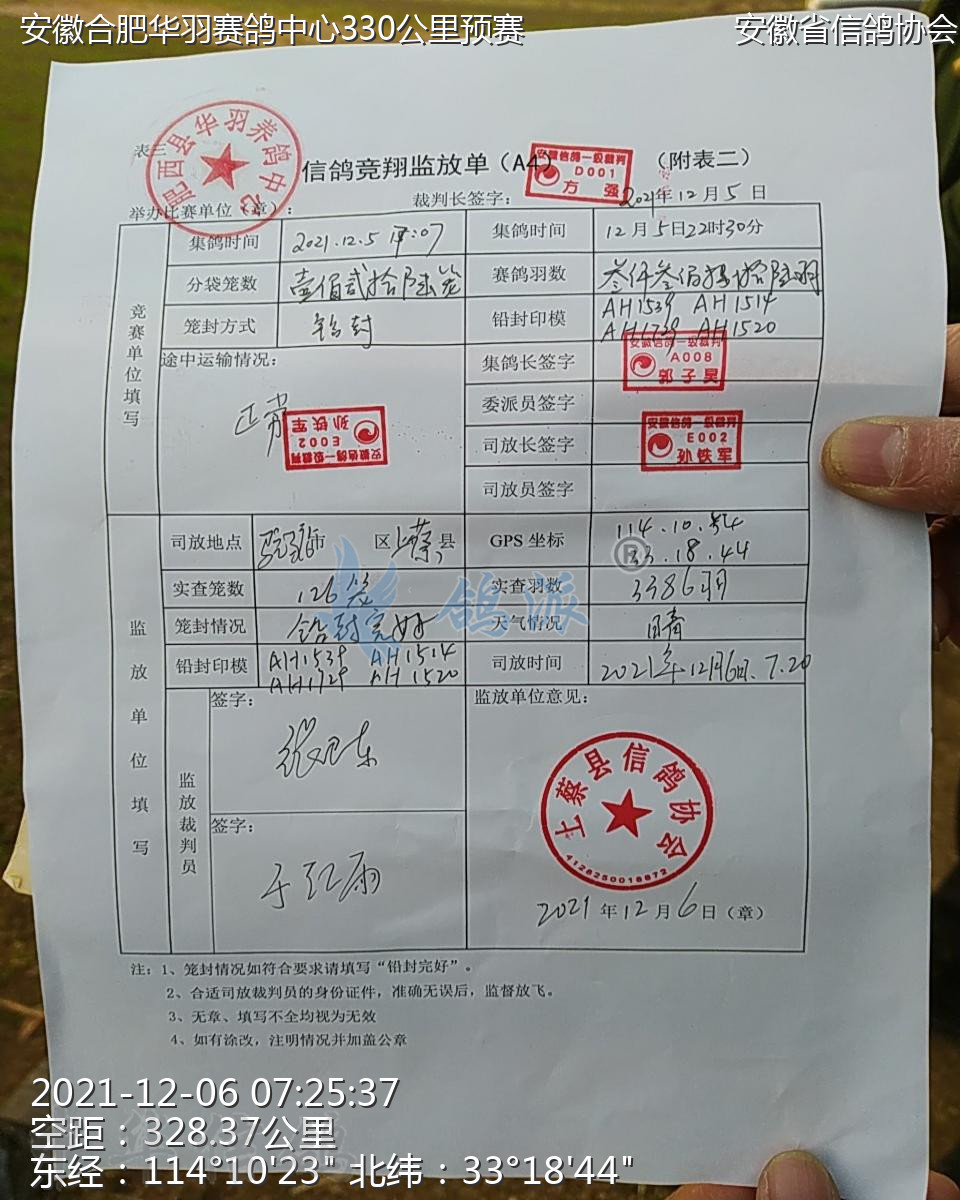 安徽合肥华羽赛鸽中心330公里预赛
安徽省信鸽协会
肥西县华羽养鸽中心
表三
信鸽竞翔监放单（A4）
（附表二）
安徽信鸽一级裁判
D001
方 强
举办比赛单位（章）：
裁判长签字：
2021年12月5日
竞赛单位填写
集鸽时间
2021.12.5
集鸽时间
12月5日22时30分
分袋笼数
壹佰贰拾陆笼
赛鸽羽数
叁仟叁佰捌拾陆羽
笼封方式
铅封
铅封印模
AH1539 AH1514
AH1729 AH1520
途中运输情况：
正常
安徽信鸽一级裁判
E002
孙铁军
集鸽长签字
安徽信鸽一级裁判
A008
郭子昊
委派员签字
司放长签字
安徽信鸽一级裁判
E002
孙铁军
司放员签字
监放单位填写
司放地点
驻马店市 区上蔡县
GPS 坐标
114.10.54
33.18.44
实查笼数
126笼
实查羽数
3386羽
笼封情况
铅封完好
天气情况
晴
铅封印模
AH1539 AH1514
AH1729 AH1520
司放时间
2021年12月6日.7.20
监放裁判员
签字：
签字：
于红雨
监放单位意见：
上蔡县信鸽协会
4128250018872
2021年12月6日（章）
鸽派
®
注：1、笼封情况如符合要求请填写“铅封完好”。
2、合适司放裁判员的身份证件，准确无误后，监督放飞。
3、无章、填写不全均视为无效
4、如有涂改，注明情况并加盖公章
2021-12-06 07:25:37
空距：328.37公里
东经：114°10'23" 北纬：33°18'44"